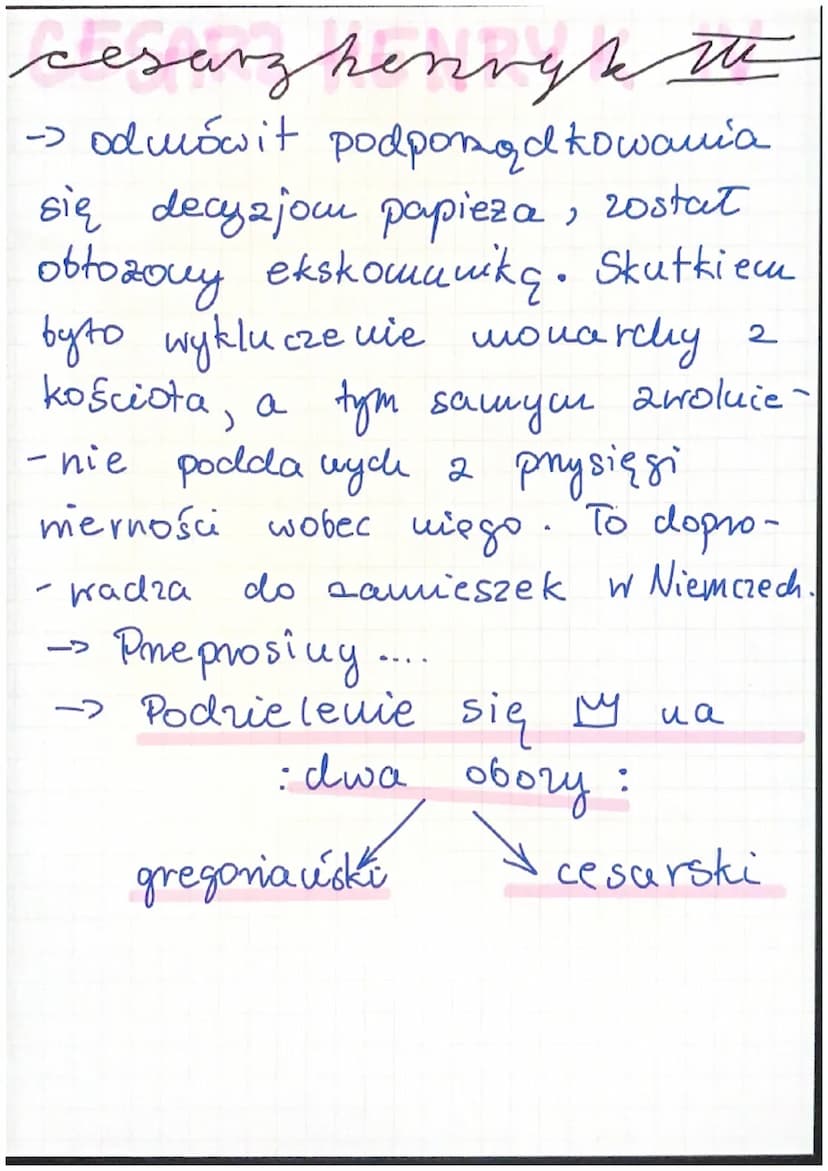 CESARZ HENRYK IV
cesarz henryk III
-> odmówił podporządkowania
się decyzjom papieża, został
obłożony ekskomuniką. Skutkiem
było wykluczenie monarchy z
kościoła, a tym samym zwolnie-
-nie poddanych z przysięgi
wierności wobec niego. To dopro-
-wadza do zamieszek w Niemczech.
-> Przeprosiny ....
-> Podzielenie się na
: dwa obozy :
gregoriański cesarski